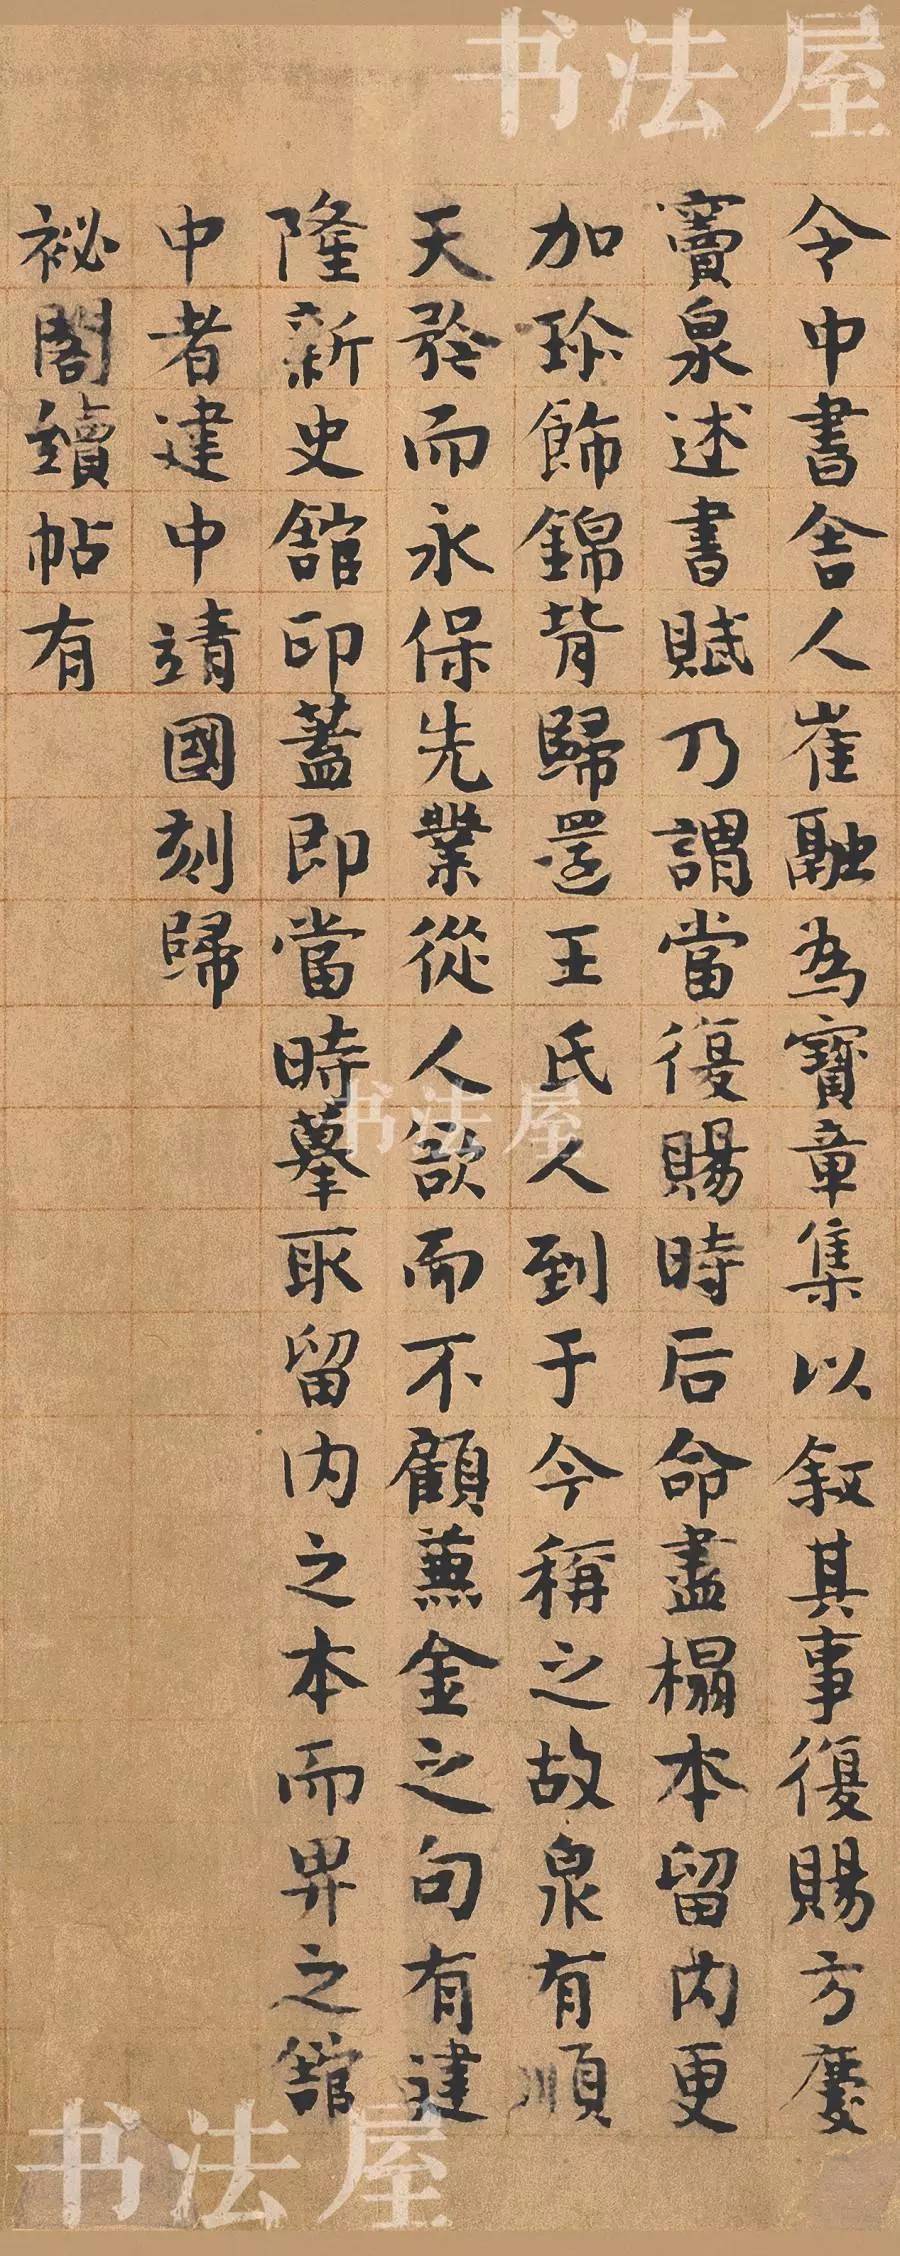 书法屋
令中書舍人崔融為寶章集以叙其事復賜方慶
竇泉述書賦乃謂當復賜時后命盡榻本留内更
加珎飾錦背歸還王氏人到于今稱之故泉有順
天矜而永保先業從人欲而不顧蒹金之句有建
隆新史舘印蓋即當時摹取留内之本而畀之舘
中者建中靖國刻歸
祕閣續帖有
书法屋
书法屋